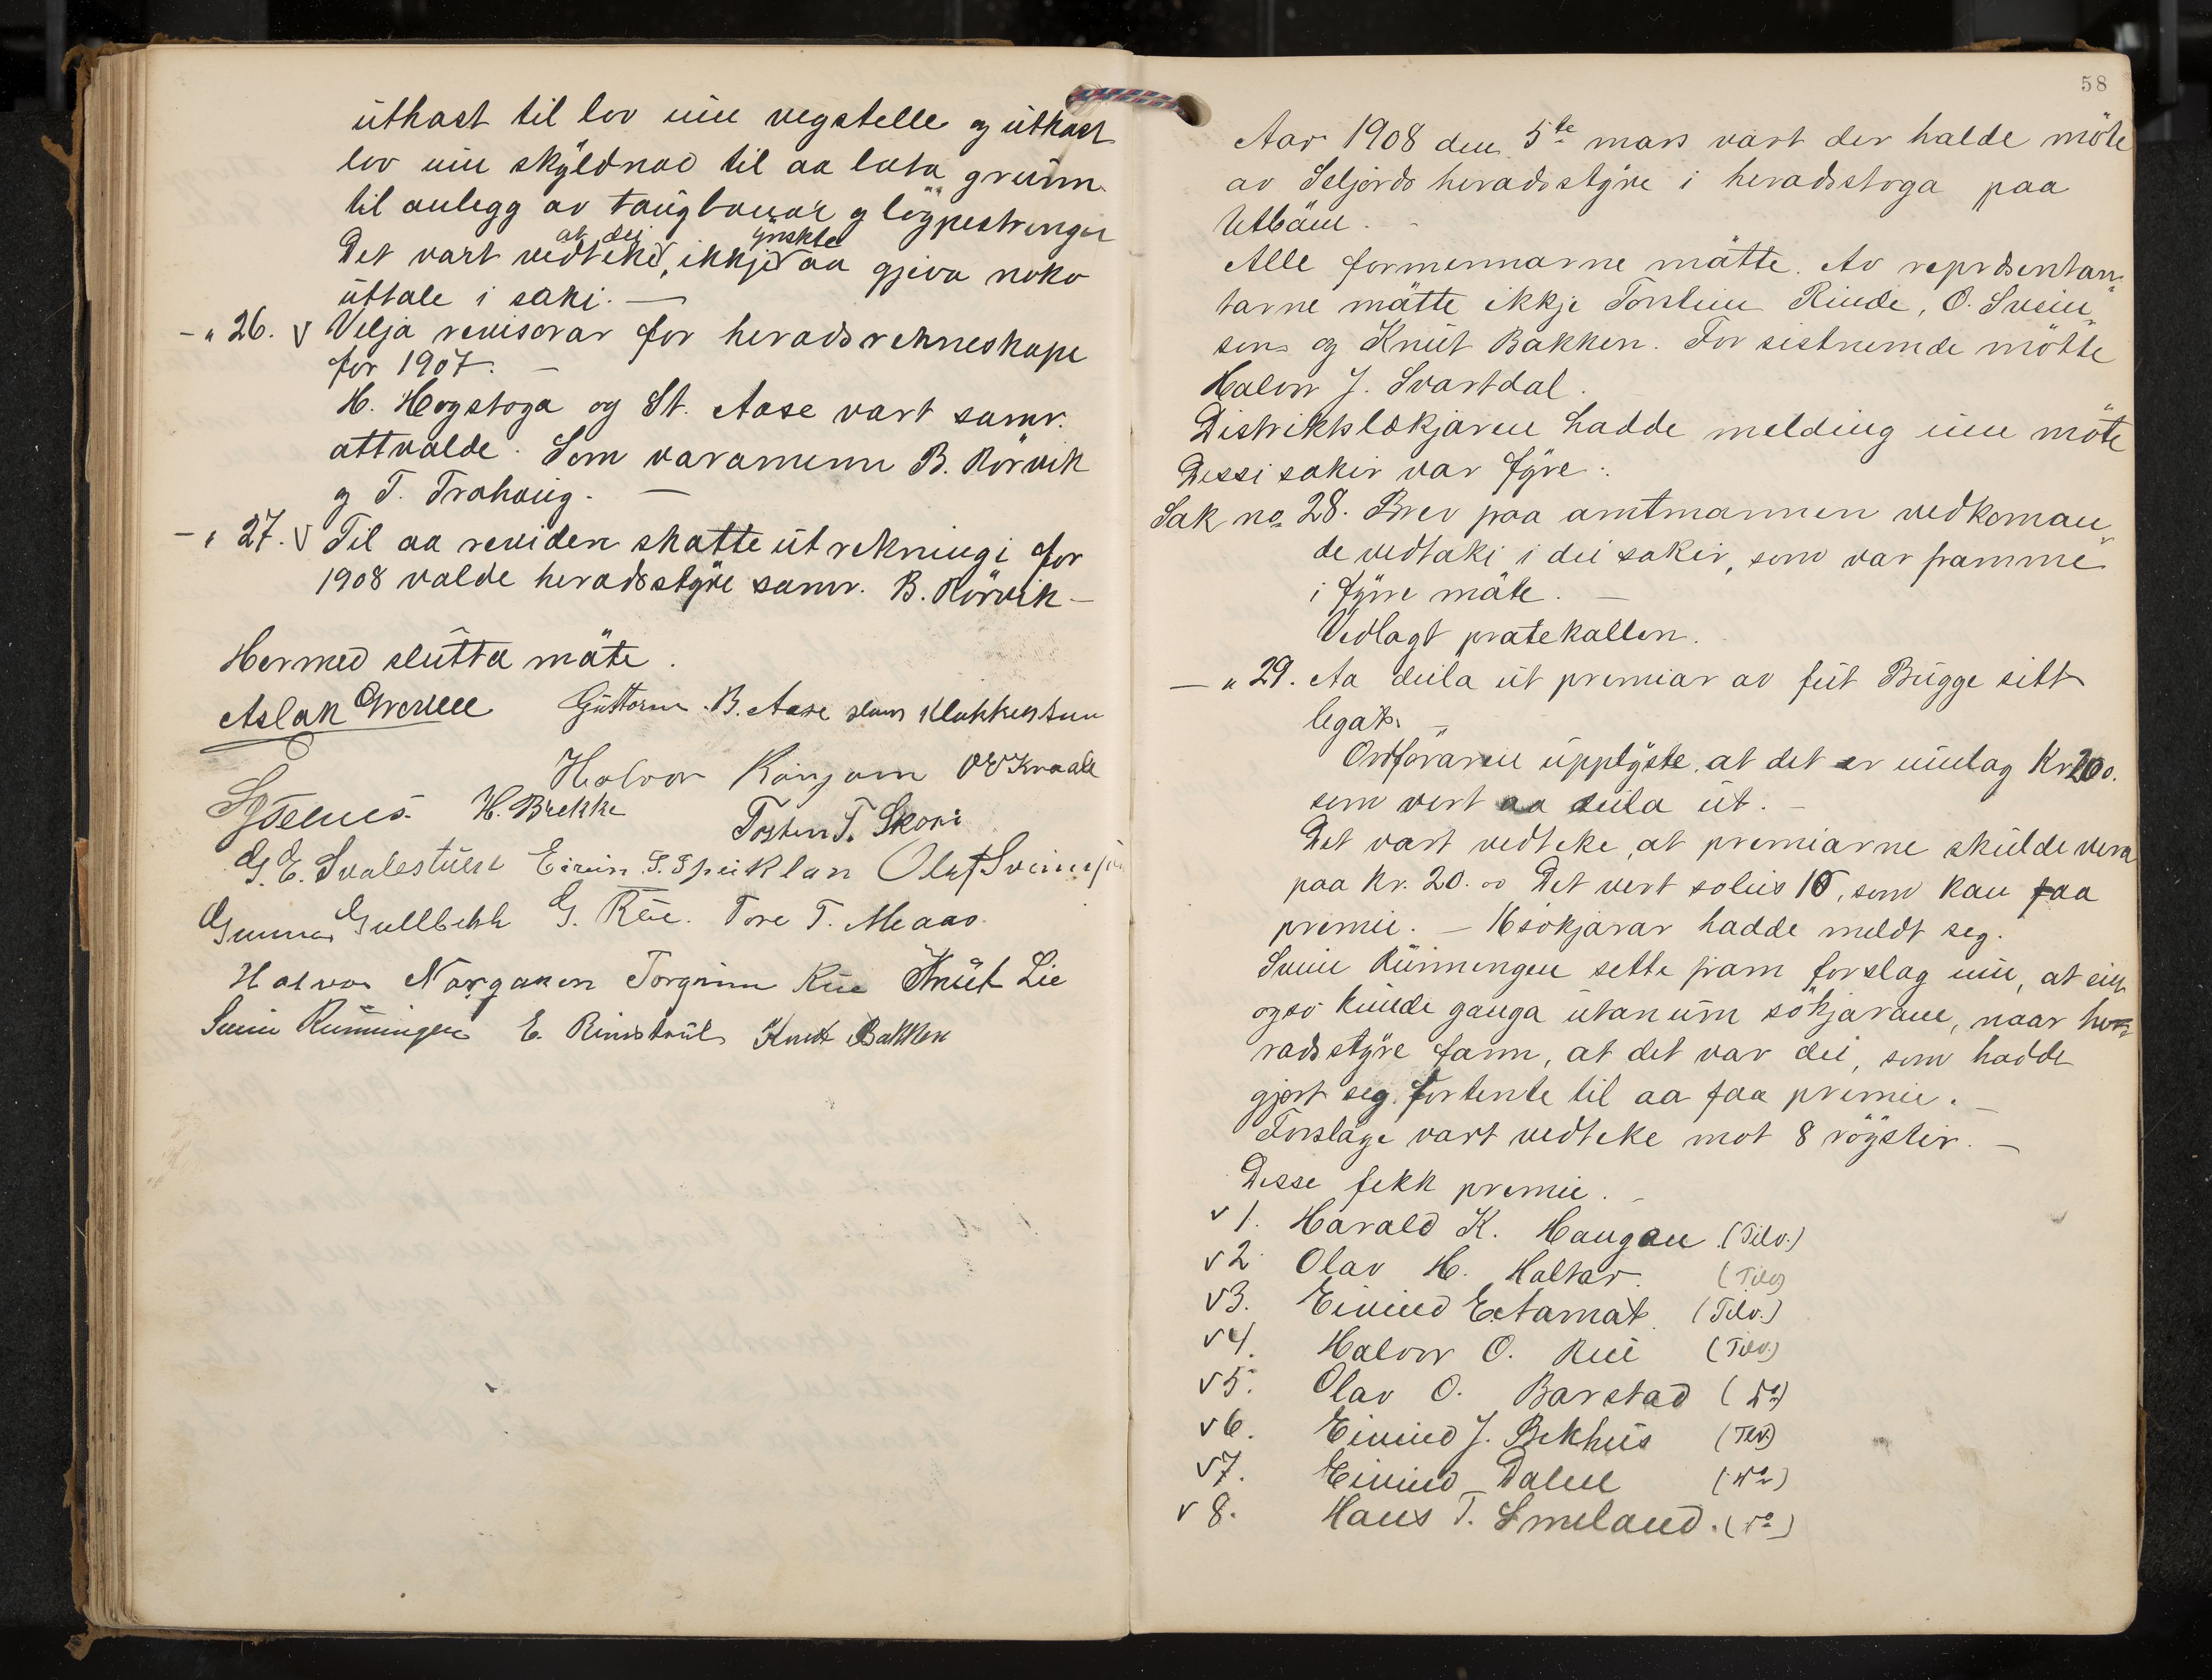 úthast til lov um vegstelle og úthast
lov um skýldnad til aa lata grúnn
til anlegg av taúgbanar og lögpestrengir
Det vart vedteke, at dei ikkje ynskte aa gjeva noko
úttale i saki. —
- " 26. V Velja revisorar for heradsrekneskape
for 1907. —
H. Hogstoga og St. Aase vart samr.
attvalde. Som varamenn B. Rörvik
og T. Trahaúg. —
- " 27. V Til aa reviden skatteútrekningi for
1908 valde heradsstýre samr. B. Rörvik —
Hermed slútta möte.
Aslak Groven Gúttorm B. Aase
Halvor Ronjom O V Kraale
H. Brekke Torsten T. Skori
G. E. Svalestúen Eivin T. Olaf Sveins
Gunnar Gullbekk G. Rúe. Tore T. Meaas
Halvor Norgaren Torgrim Rúe Knút Lie
Svein Rúnningen E. Rindstrúl Knút Bakken
58
Aar 1908 den 5te mars vart der halde möte
av Seljords heradsstýre i heradsstoga paa
Utböen. -
Alle formennarne mötte. Av representan-
tarne mötte ikkje Rinde, O. Svein-
sen og Knút Bakken. For sistnemde mötte
Halvor J. Svartdal.
Distriktslækjaren hadde melding um möte
Dessi sakir var fýre:
Sak no 28. Brev paa amtmannen vedkoman-
de vedtaki i dei sakir, som var framme
i fýrre möte. —
Vedlagt protekollen.
— " 29. Aa deila út premiar av fút Búgge sitt
legat. —
Ordföraren úpplýste, at det er umlag Kr 200.
som vert aa deila út. —
Det vart vedteke, at premiarne skúlde vera
paa Kr. 20.00 Det vert soleis 10, som kan faa
premie. — 16 sökjarar hadde meldt seg.
Svein Rúnningen sette fram forslag um, at ein
ogso kúnde ganga útanúm sökjarane, naar he-
radsstýre fann, at det var dei, som hadde
gjort seg fortente til aa faa premie. —
Forslage vart vedteke mot 8 röyster. —
Desse fekk premie. -
v 1. Harald K. Haugan (Tilv.)
v 2. Olav H. Haltar. (Tilv)
v 3. Eivind Extamat. (Tilv.)
v 4. Halvor O. Rúi (Tilv.)
v 5. Olav O. Barstad (do)
v 6. Eivind J. Bekhús (Tilv.)
v 7. Eivind Dalen (do)
v 8. Hans T. Smeland. (do)